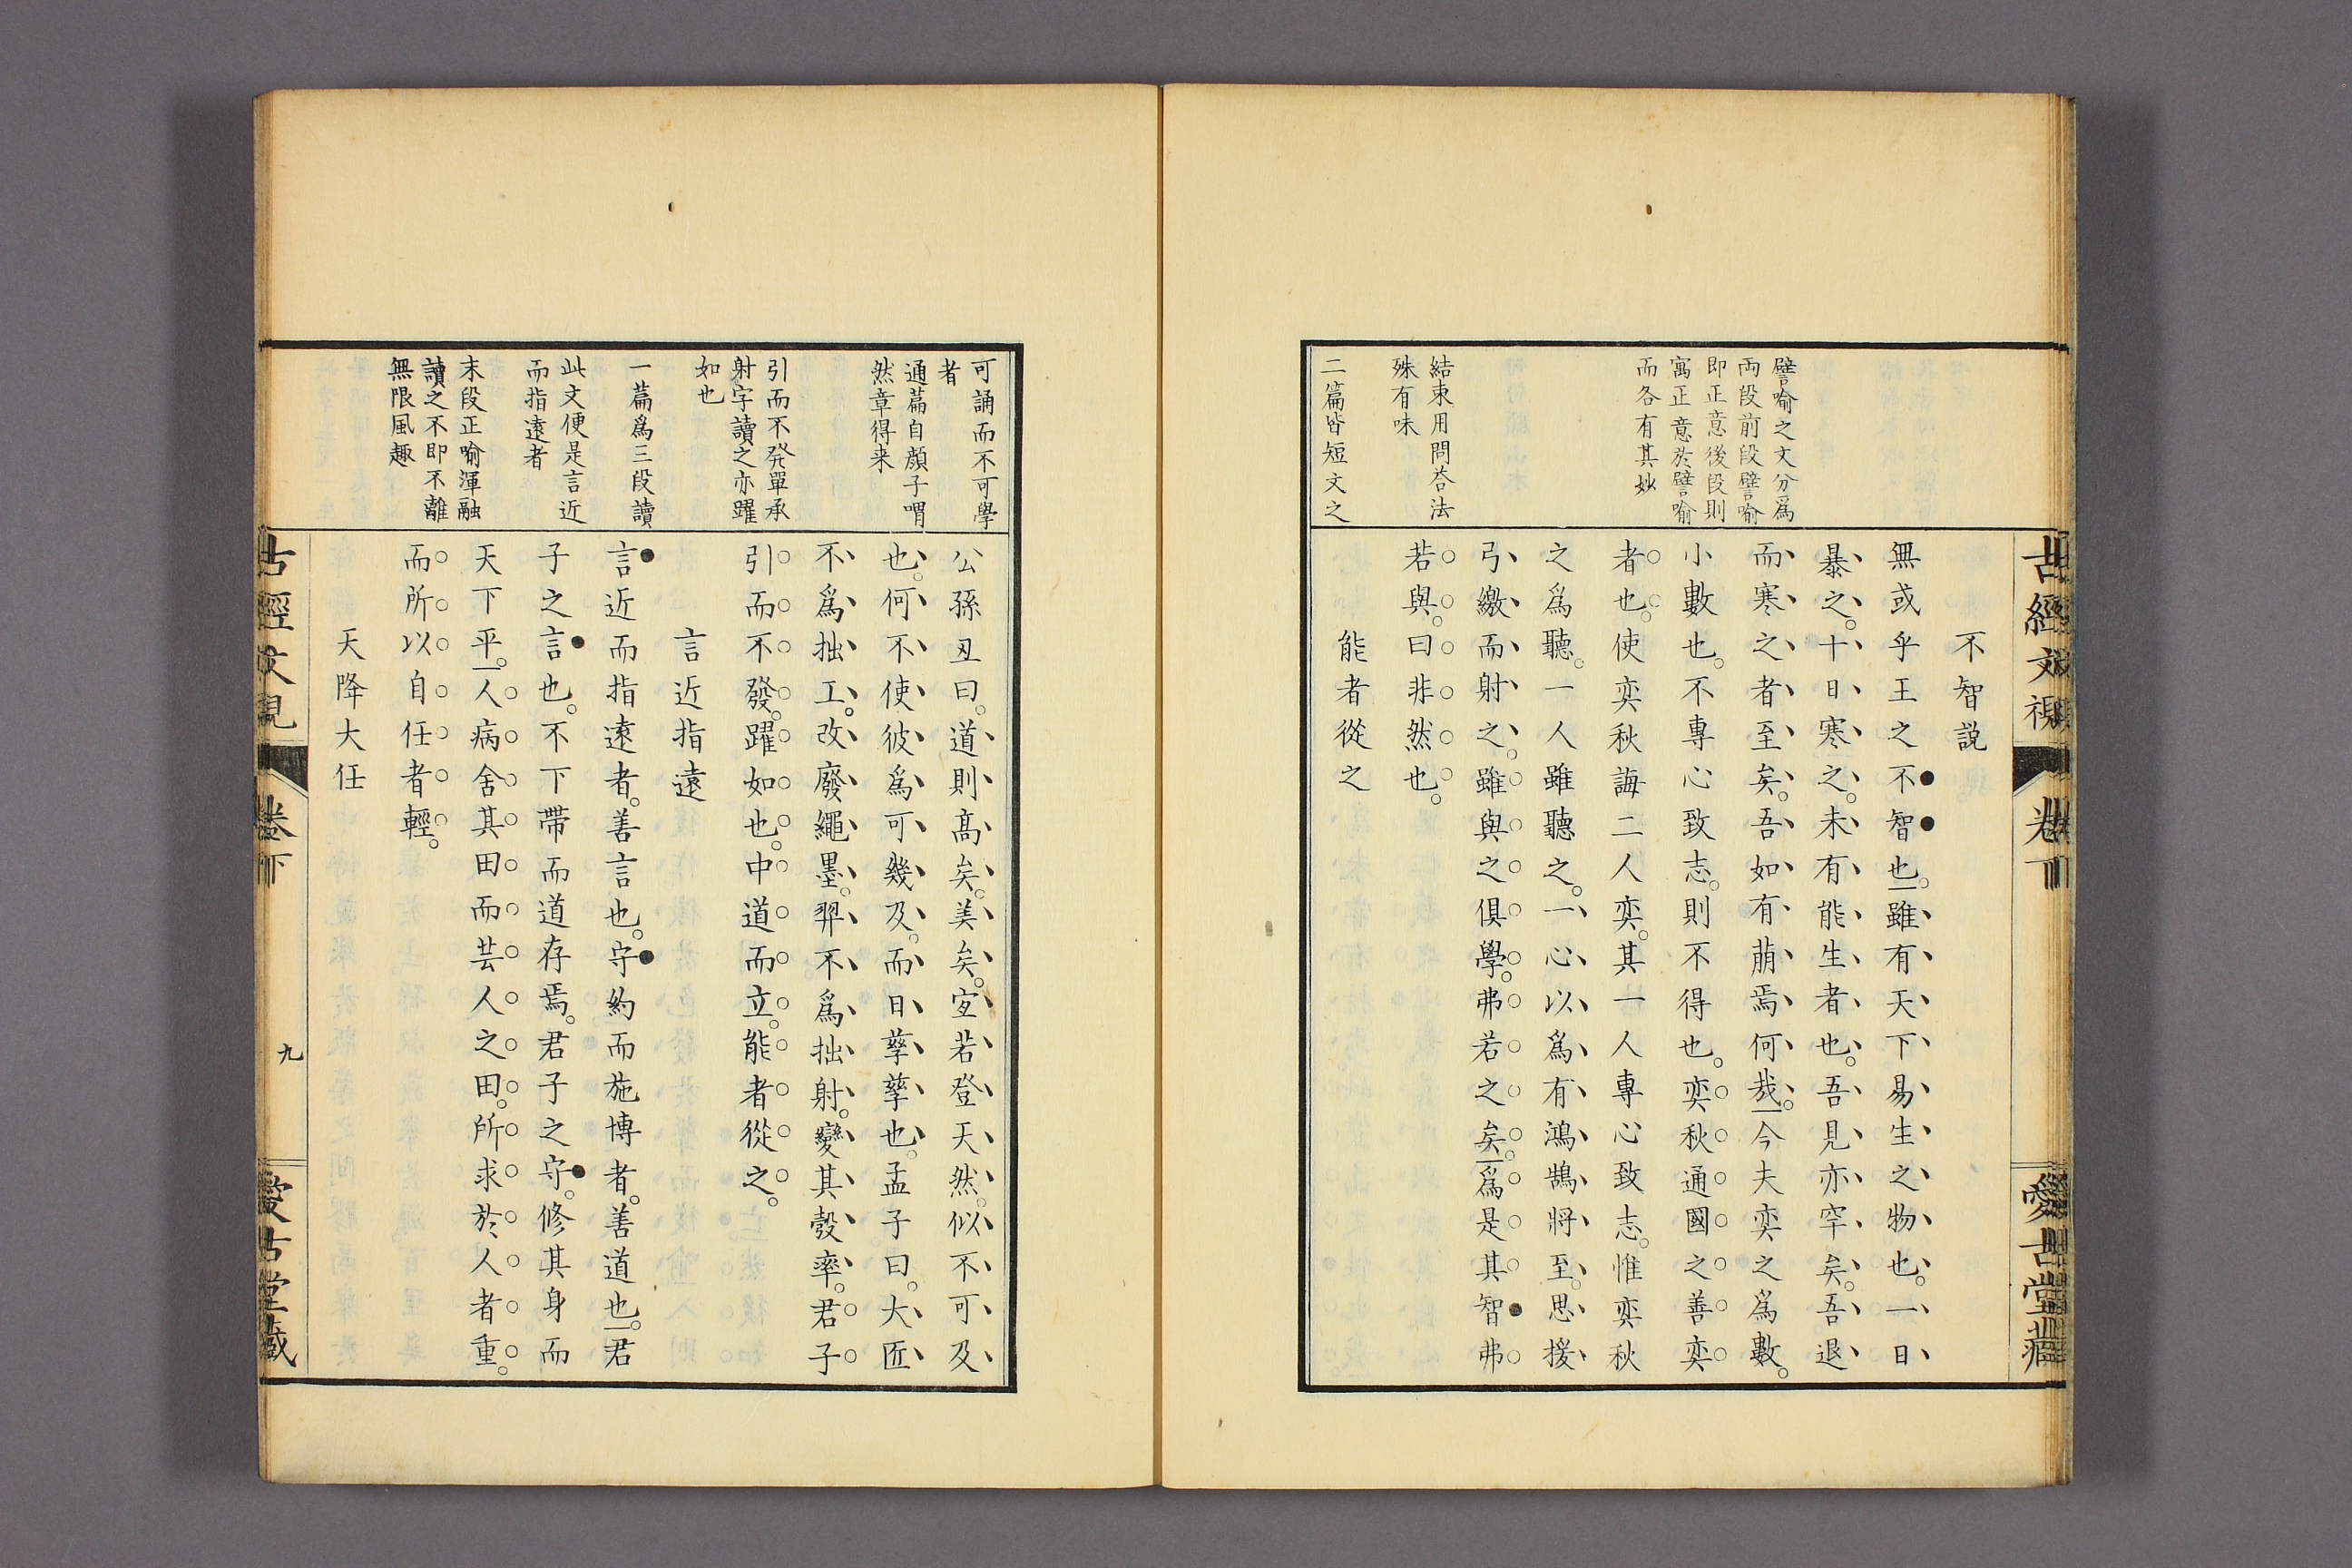 古經文視
卷下
愛古堂藏
譬喻之文分爲
両段前段譬喻
即正意後段則
寓正意於譬喻
而各有其妙
結束用問荅法
殊有味
二篇皆短文之
不智説
無或乎王之不智也。雖有天下易生之物也。一日
暴之。十日寒之。未有能生者也。吾見亦罕矣。吾退
而寒之者至矣。吾如有萠焉何哉。今夫奕之爲數。
小數也。不專心致志。則不得也。奕秋通國之善奕
者也。使奕秋誨二人奕。其一人專心致志。惟奕秋
之爲聽。一人雖聽之。一心以爲有鴻鵠將至。思援
弓繳而射之。雖與之俱學。弗若之矣。爲是其智弗
若與。曰非然也。
能者從之
可誦而不可學
者
通篇自顏子喟
然章得来
引而不発單承
射字讀之亦躍
如也
一篇爲三段讀
此文便是言近
而指遠者
末段正喻渾融
讀之不即不離
無限風趣
公孫丑曰。道則高矣。美矣。宜若登天然。似不可及
也。何不使彼爲可幾及。而日孳孳也。孟子曰。大匠
不爲拙工。改廢繩墨。羿不爲拙射。變其彀率。君子
引而不發。躍如也。中道而立。能者從之。
言近指遠
言近而指遠者。善言也。守約而施博者。善道也。君
子之言也。不下帶而道存焉。君子之守。修其身而
天下平。人病舍其田而芸人之田。所求於人者重。
而所以自任者輕。
天降大任
古經文視
卷下
九
愛古堂藏